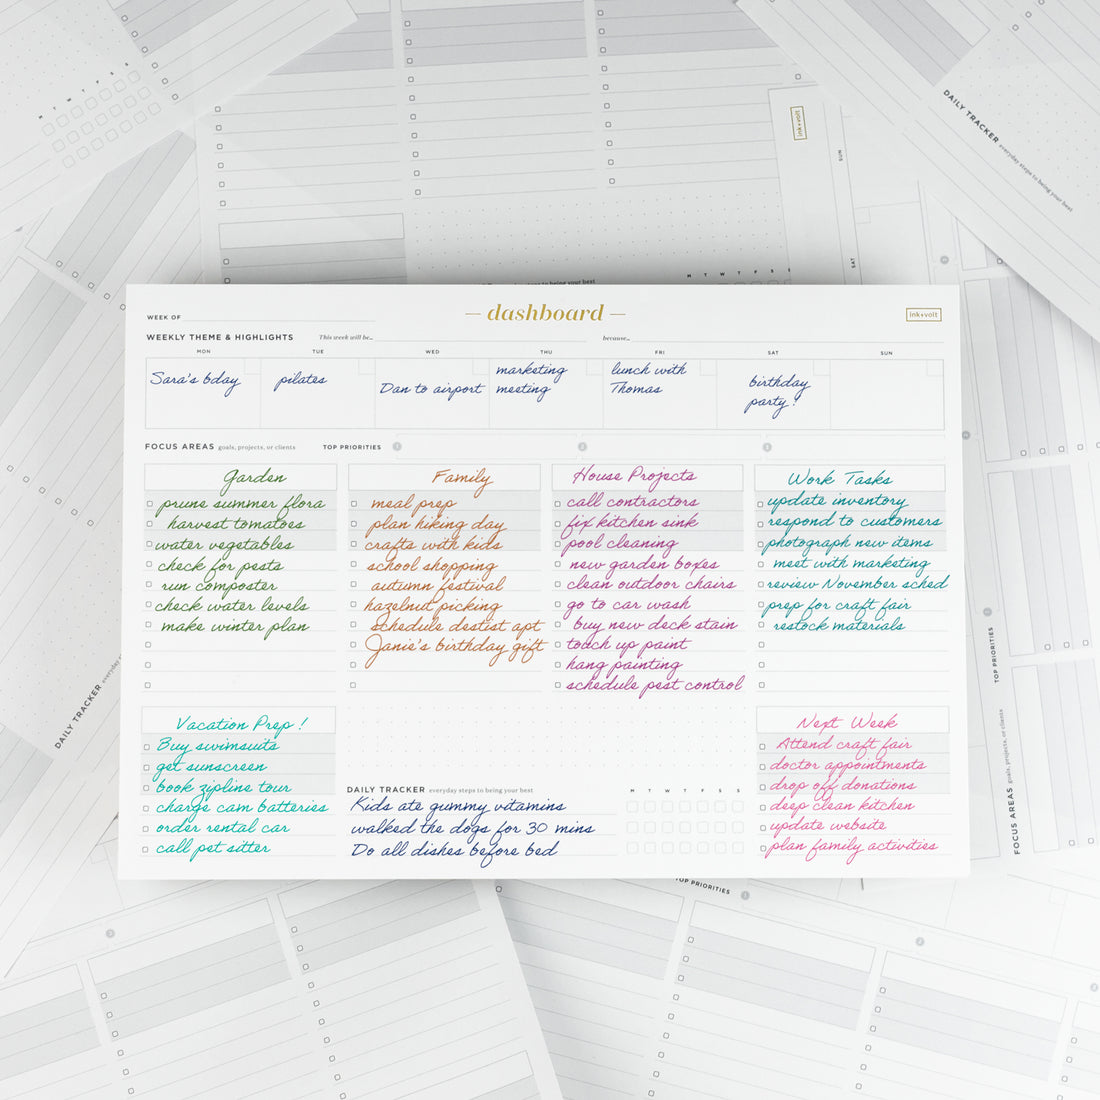 M T W T F S S
DAILY TRACKER everyday steps to being your best
ink+volt
SUN
SAT
M T W T F S S
being your best
— dashboard —
WEEK OF
ink+volt
WEEKLY THEME & HIGHLIGHTS This week will be... because...
MON TUE WED THU FRI SAT SUN
Sara's bday
pilates
Dan to airport
marketing
meeting
lunch with
Thomas
birthday
party!
FOCUS AREAS goals, projects, or clients TOP PRIORITIES 1 2 3
Garden
prune summer flora
harvest tomatoes
water vegetables
check for pests
run composter
check water levels
make winter plan
Family
meal prep
plan hiking day
crafts with kids
school shopping
autumn festival
hazelnut picking
schedule destist apt
Janie's birthday gift
House Projects
call contractors
fix kitchen sink
pool cleaning
new garden boxes
clean outdoor chairs
go to car wash
buy new deck stain
touch up paint
hang painting
schedule pest control
Work Tasks
update inventory
respond to customers
photograph new items
meet with marketing
review November sched
prep for craft fair
restock materials
Vacation Prep!
Buy swimsuits
get sunscreen
book zipline tour
charge cam batteries
order rental car
call pet sitter
DAILY TRACKER everyday steps to being your best
M T W T F S S
Kids ate gummy vitamins
walked the dogs for 30 mins
Do all dishes before bed
Next Week
Attend craft fair
doctor appointments
drop off donations
deep clean kitchen
update website
plan family activities
DAILY TRACKER everyday
TOP PRIORITIES
FOCUS AREAS goals, projects, or clients
TOP PRIORITIES